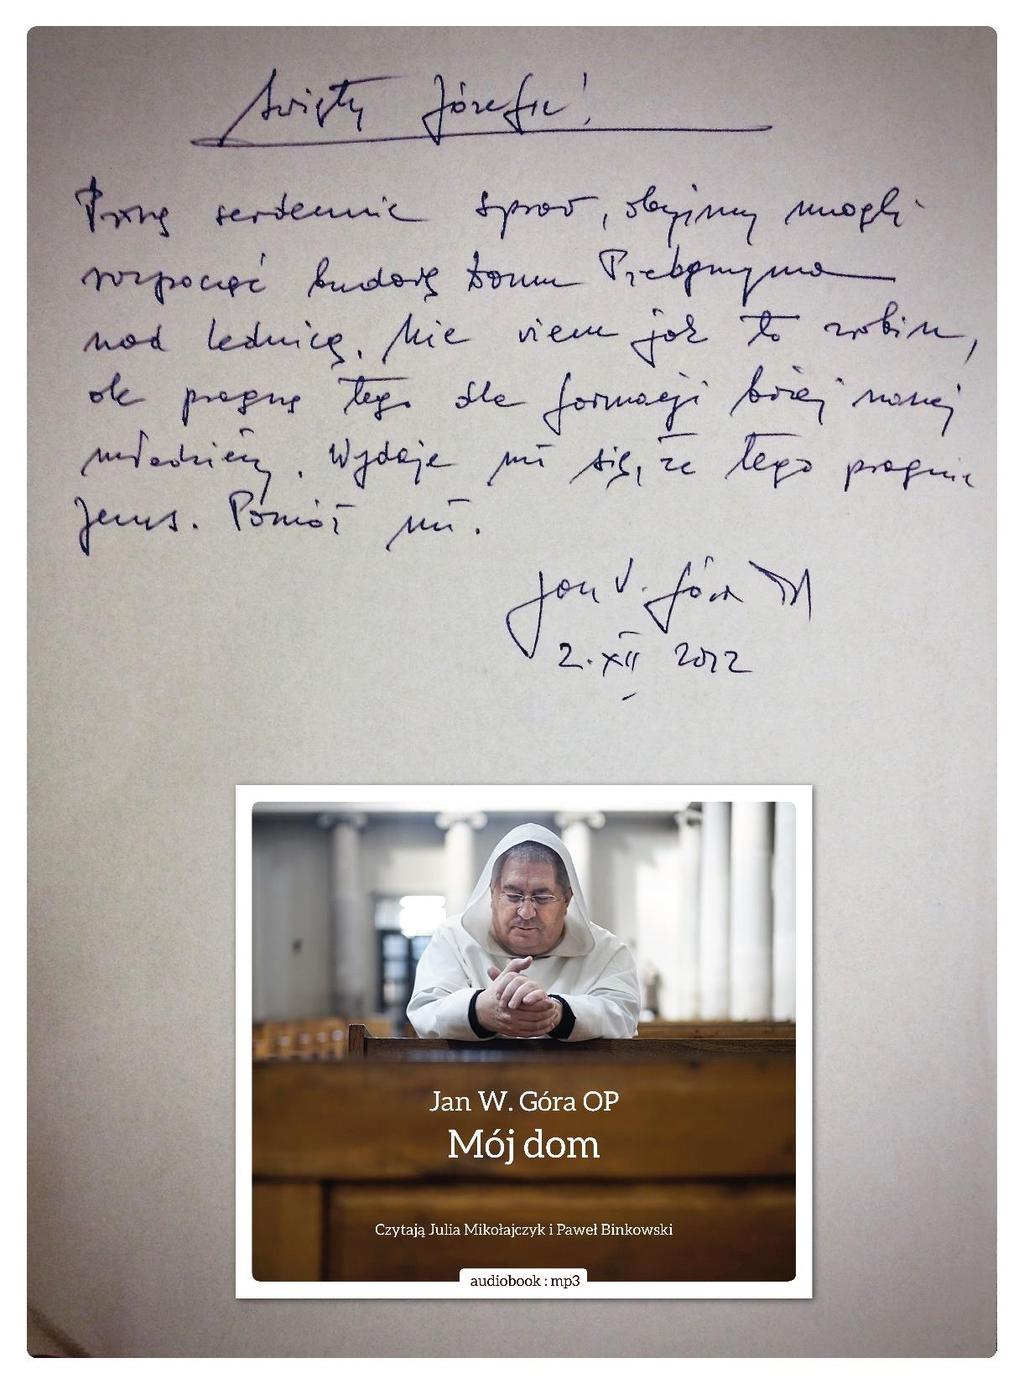 Święty Józefie!
Proszę serdecznie spraw, abyśmy mogli
rozpocząć budowę Domu Pielgrzyma
nad Lednicą. Nie wiem jak to zrobić,
ale pragnę tego dla formacji bożej naszej
młodzieży. Wydaje mi się, że tego pragnie
Jezus. Pomóż mi.
Jan W. Góra OP
2.XII 2012
Jan W. Góra OP
Mój dom
Czytają Julia Mikołajczyk i Paweł Binkowski
audiobook : mp3